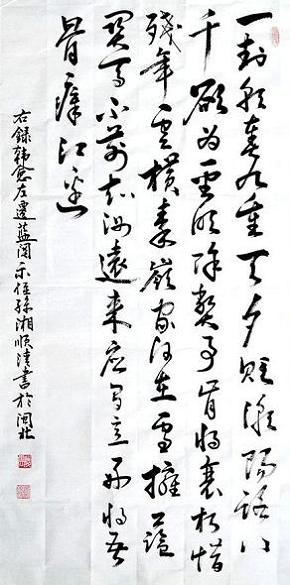 一封朝奏九重天夕貶潮陽路八
千欲為聖明除弊事肯將衰朽惜
殘年雲橫秦嶺家何在雪擁藍
関馬不前知汝遠來應有意好收吾
骨瘴江邊
右錄韓愈左遷藍関示侄孫湘順書於閩北